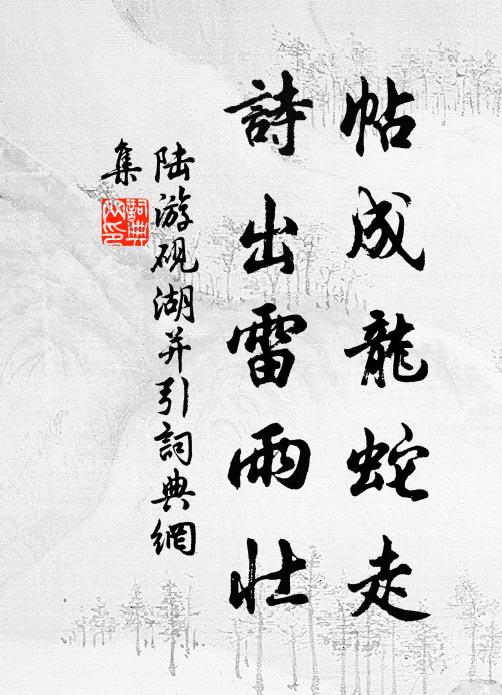 帖成龍蛇走
詩出雷雨壯
陆游砚湖并引詞典網
集
詞典
网印